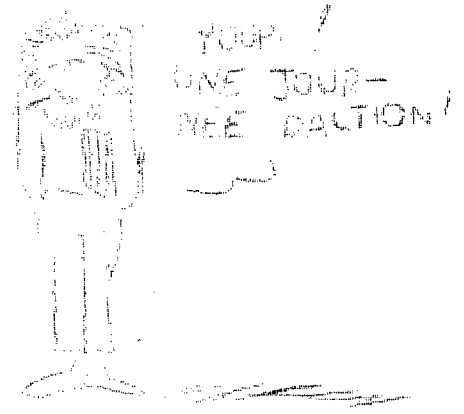 YOUPI !
UNE JOUR-
NÉE D'ACTION !